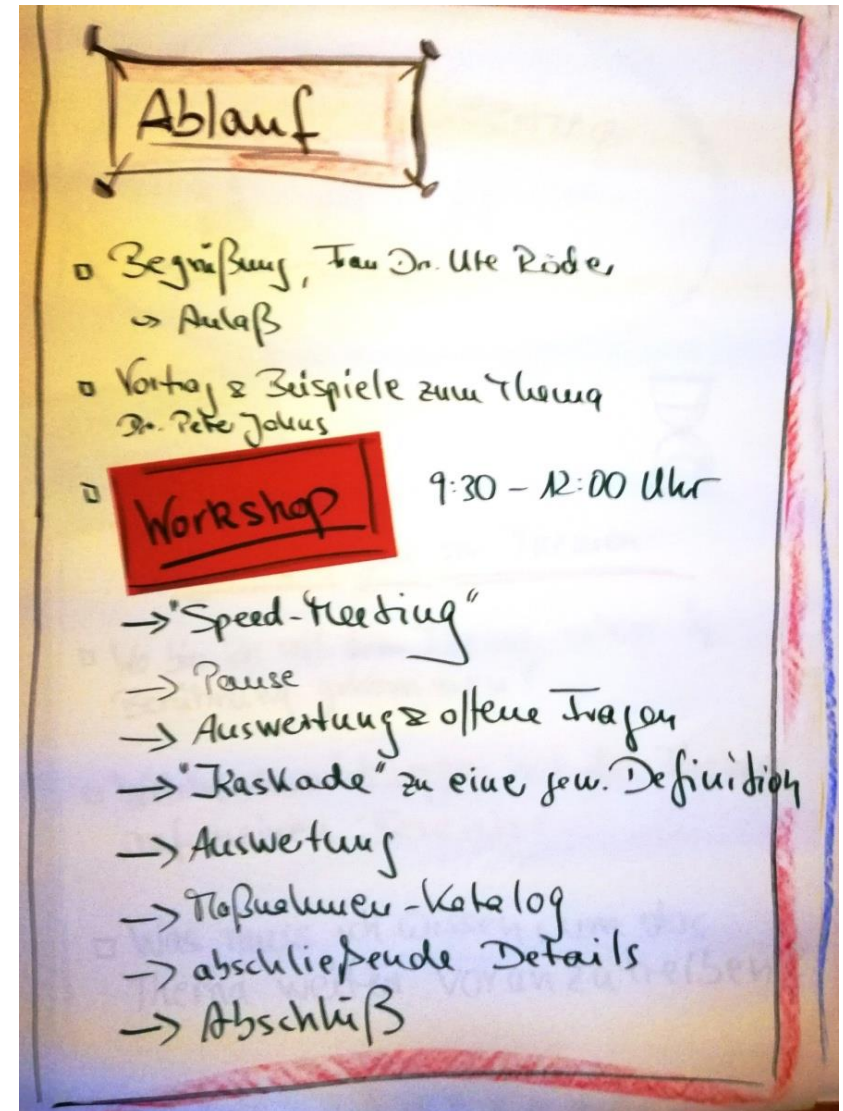 Ablauf
Begrüßung, Frau Dr. Ute Röder
↪ Anlaß
Vortrag & Beispiele zum Thema
Dr. Peter Johns
Workshop 9:30 – 12:00 Uhr
→ "Speed-Meeting"
→ Pause
→ Auswertung & offene Fragen
→ "Kaskade" zu einer gem. Definition
→ Auswertung
→ Maßnahmen-Katalog
→ abschließende Details
→ Abschluß